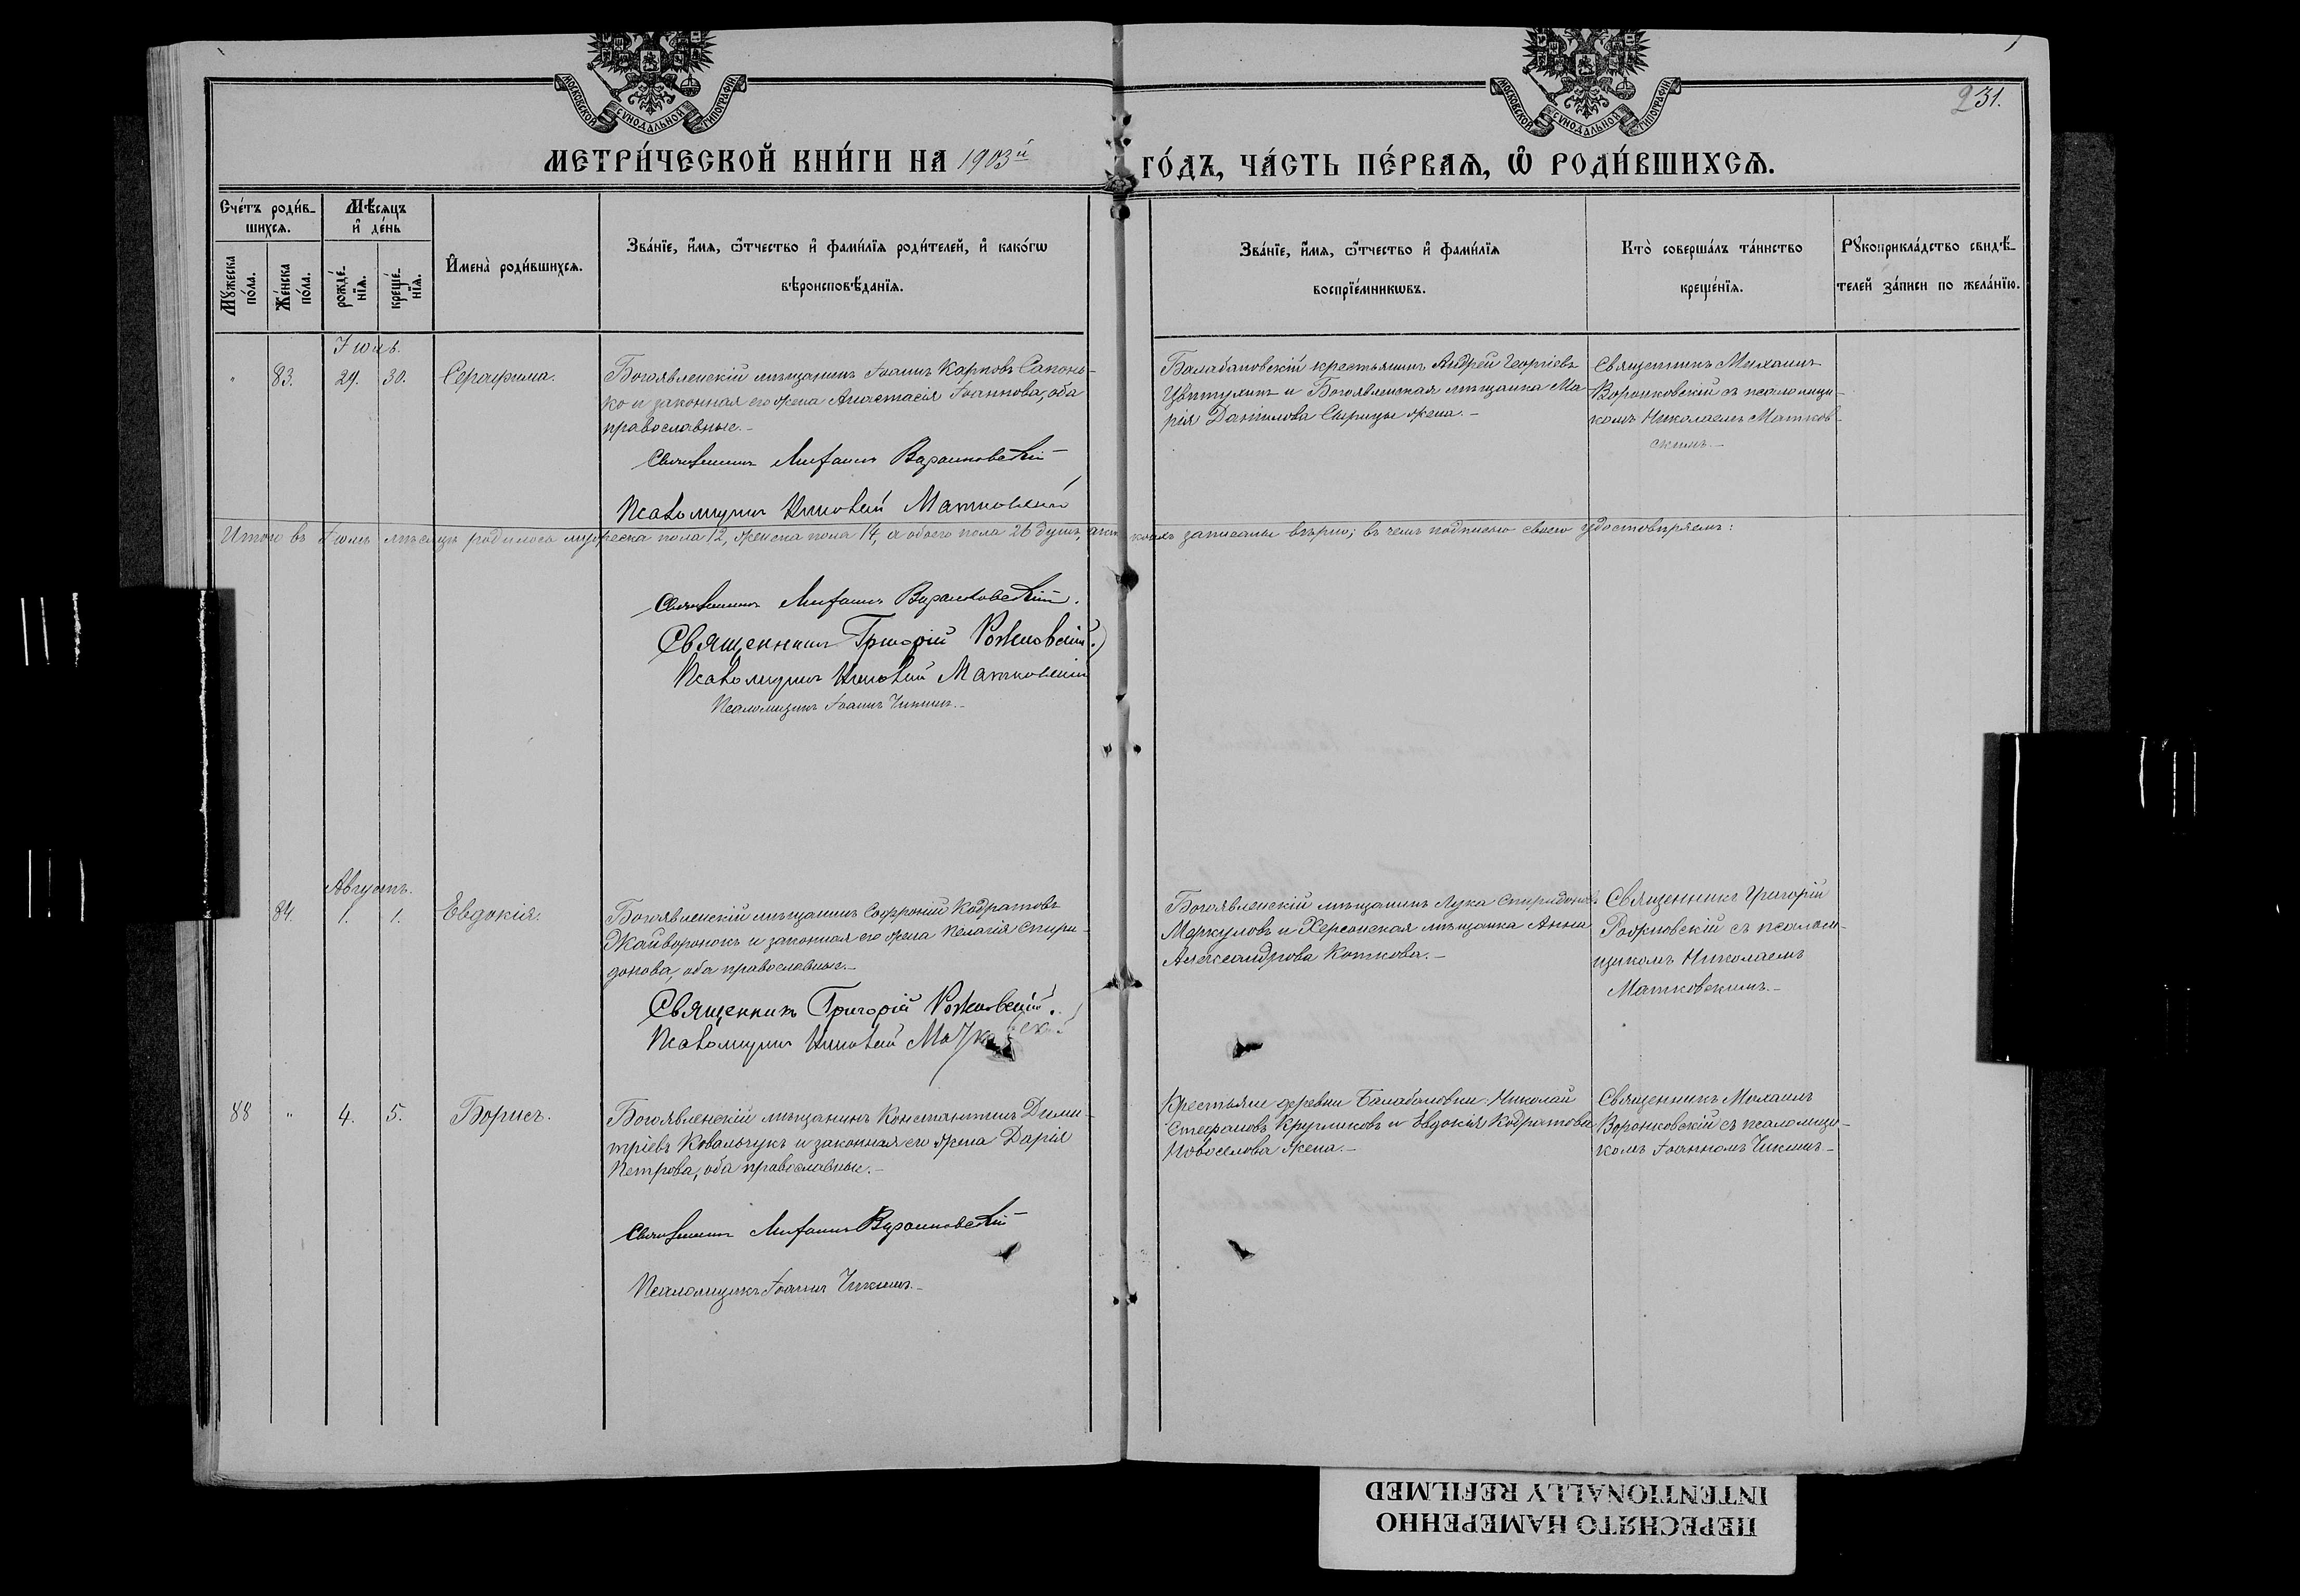 МОСКОВСКОЙ СѴНОДАЛЬНОЙ ТИПОГРАФІИ
МОСКОВСКОЙ СѴНОДАЛЬНОЙ ТИПОГРАФІИ
231.
МЕТРИ́ЧЕСКОЙ КНИ́ГИ НА 1903й ГО́ДЪ, ЧА́СТЬ ПЕ́РВАѦ, Ѡ҆ РОДИ́ВШИХСѦ.
Сче́тъ роди́в-
шихсѧ.
Мꙋ́жеска
по́ла.
Же́нска
по́ла.
Мѣ́сѧцъ
и҆ де́нь
рожде́-
нїѧ.
креще́-
нїѧ.
И҆мена̀ роди́вшихсѧ.
Зва́нїе, и҆́мѧ, ѻ҆́тчество и҆ фами́лїѧ роди́телей, и҆ како́гѡ
вѣроисповѣ́данїѧ.
Зва́нїе, и҆́мѧ, ѻ҆́тчество и҆ фами́лїѧ
воспрїе́мникѡвъ.
Кто̀ соверша́лъ та́инство
креще́нїѧ.
Рꙋкоприкла́дство свидѣ́-
телей за́писи по жела́нїю.
Іюль.
" 83. 29. 30. Серафима.
Богоявленскій мѣщанинъ Іоаннъ Карповъ Сапонь-
ко и законная его жена Анастасія Іоаннова, оба
православные.-
Священникъ Михаилъ Воронковскій
Псаломщикъ Николай Матковскій
Балабановскій крестьянинъ Андрей Георгіевъ
Цвѣтухинъ и Богоявленская мѣщанка Ма-
рія Даніилова Спирицы жена.-
Священникъ Михаилъ
Воронковскій съ псаломщи-
комъ Николаемъ Матков-
скимъ.-
Итого въ Іюлѣ мѣсяцѣ родилось мужеска пола 12, женска пола 14, а обоего пола 26 душъ, записаны вѣрно; въ чемъ подписью своею удостовѣряемъ:
Священникъ Михаилъ Воронковскій.
Священникъ Григорій Рожновскій.
Псаломщикъ Николай Матковскій
Псаломщикъ Іоаннъ Чикинъ.-
Августъ.
84. 1. 1. Евдокія.
Богоявленскій мѣщанинъ Софроній Кодратовъ
Жайворонокъ и законная его жена Пелагія Спири-
донова, оба православные.-
Священникъ Григорій Рожновскій.
Псаломщикъ Николай Матковскій
Богоявленскій мѣщанинъ Лука Спиридоновъ
Меркуловъ и Херсонская мѣщанка Анна
Александрова Коткова.-
Священникъ Григорій
Рожновскій съ псалом-
щикомъ Николаемъ
Матковскимъ.-
88 " 4. 5. Борисъ.
Богоявленскій мѣщанинъ Константинъ Дими-
тріевъ Ковальчукъ и законная его жена Дарія
Петрова, оба православные.-
Священникъ Михаилъ Воронковскій
Псаломщикъ Іоаннъ Чикинъ.-
Крестьяне деревни Балабановки: Николай
Стефановъ Кругликовъ и Евдокія Кодратова
Новоселова жена.-
Священникъ Михаилъ
Воронковскій съ псаломщи-
комъ Іоанномъ Чикинъ-
ПЕРЕСНЯТО НАМЕРЕННО
INTENTIONALLY REFILMED